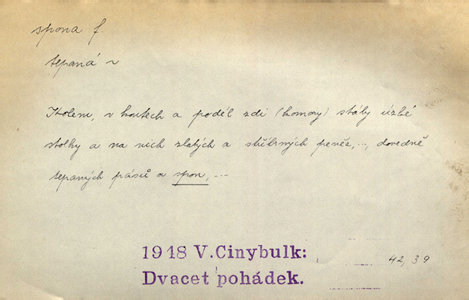 spona f
tepaná ~
Kolem, v koutech a podél zdi (komory) stály úzké
stolky a na nich zlatých a stříbrných peněz,..., dovedně
tepaných pásů a spon,...
1948 V.Cinybulk:
Dvacet pohádek.
42,39